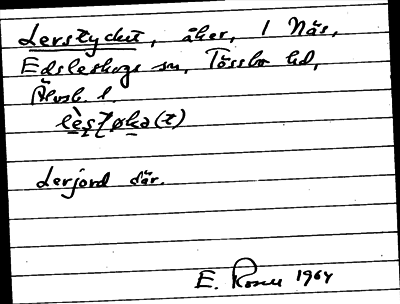 Lerstycket, åker, 1 Näs,
Edsleskogs sn, Tössbo hd,
Älvsb. l.
Lerjord där.
E. Rosell 1964